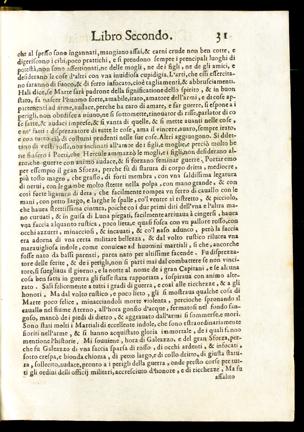 Libro Secondo. 31
che al spesso sono ingannati, mangiano assai, & carni crude non ben cotte, e
digeriscono i cibi, poco prattichi, e si prendono sempre i prencipali luoghi di
non sono affettionati, ne delle mogli, ne de i figli, ne de gli amici, e
desiderano le cose d'altri con vna insidiosa cupidigia. L'arti, che essi esercita-
no saranno di fuoco, & di ferro infocato, cioè tagliamenti, & abbrusciamenti.
Hali dice, se Marte sarà padrone della significatione dello spirito, & in buon
stato, fa nascere l'huomo forte, amabile, irato, amatore dell'armi, e di cose ap-
partenenti ad arme, audace, ha caro di amare, e far guerra, si espone a i
perigli, non obedisce a niuno, ne si sottomette, si
fa fatti, & audaci imprese, & si vanta di quelle, & si mette auanti nelle cose,
e disprezzatore di tutte le cose, ama il vincere, auaro, sempre irato,
costumi pendenti nelle sue cose. Altri aggiungono. Si dilet-
d'amore de i figli, e moglie, perciò molto be
ne fauoscì i Poeti, che Hercole ammazzò le moglie, e figli, non desiderano al-
tro, che guerre con animo audace, & si forzano seminar guerre. Portaremo
per essempio il gran Sforza, perche fù di statura di corpo dritta, mediocre,
più tosto magro, che grasso, di forti membra, con vna saldissima legatura
di nerui, con le gambe molto strette nella polpa, con mano grande, & con
così forte ligatura di deta, che facilmente rompea vn ferro di cauallo con le
mani, con petto largo, e larghe le spalle, co'l ventre sì ristretto, & picciolo,
che hauea strettissima cintura, poiche co i dui primi diti dell'vna, e l'altra ma-
no curuati, & in guisa di Luna piegati, facilmente arriuaua à cingersi, hauea
vna faccia alquanto rustica, poco lieta, quasi fosca con vn pallore rosso, con
occhi azzurri, minacciosi, & incauati, & co'l naso adunco, però la faccia
era adorna di vna certa militare bellezza, & dal volto rustico riluceа vna
marauigliosa indole, come conuiene ad huomini martiali, si che, ancorche
fosse nato da bassi parenti, parea nato per altissime facende. Fù disprezza-
tore delle ferite, & de i perigli, non si partì mai dal combattere se non vinci-
tore, si suegliaua di giorno, e la notte al nome de i gran Capitani, e se alcuna
cosa ben fatta in guerra gli fusse stata rapportata, sospiraua con animo alte-
rato. Salì felicemente a tutti i gradi di guerra, e così alle ricchezze, & a gli
honori. Ma dal volto rustico, e poco lieto, gli si mostraua qualche cosa di
Marte poco felice, minacciandoli morte violenta, percioche spronando il
cauallo nel fiume Aterno, all'hora gonfio d'acque, fermossi nel fondo fan-
goso, mancò dei piedi di dietro, & aggrauato dall'armi si sommerse, e morì.
Sono stati molti i Martiali di eccellente indole, che sono straordinariamente
fioriti nell'arme, & si hanno acquistato gloria immortale, de i quali si non
mentione l'historie. Mi souuiene, hora di Galeazzo, e del gran Sforza, per-
che fù Galeazzo di vna faccia sparsa di rosso, di occhi ardenti, & infocati,
fronte crespa, e bionda chioma, di petto largo, e di collo dritto, di giusta statu-
ra, sollecito, audace, pronto a i perigli della guerra, onde presto corse per tut-
ti gli ordini delli officij militari, accresciuto d'honore, e di ricchezze. Ma fu
assalto